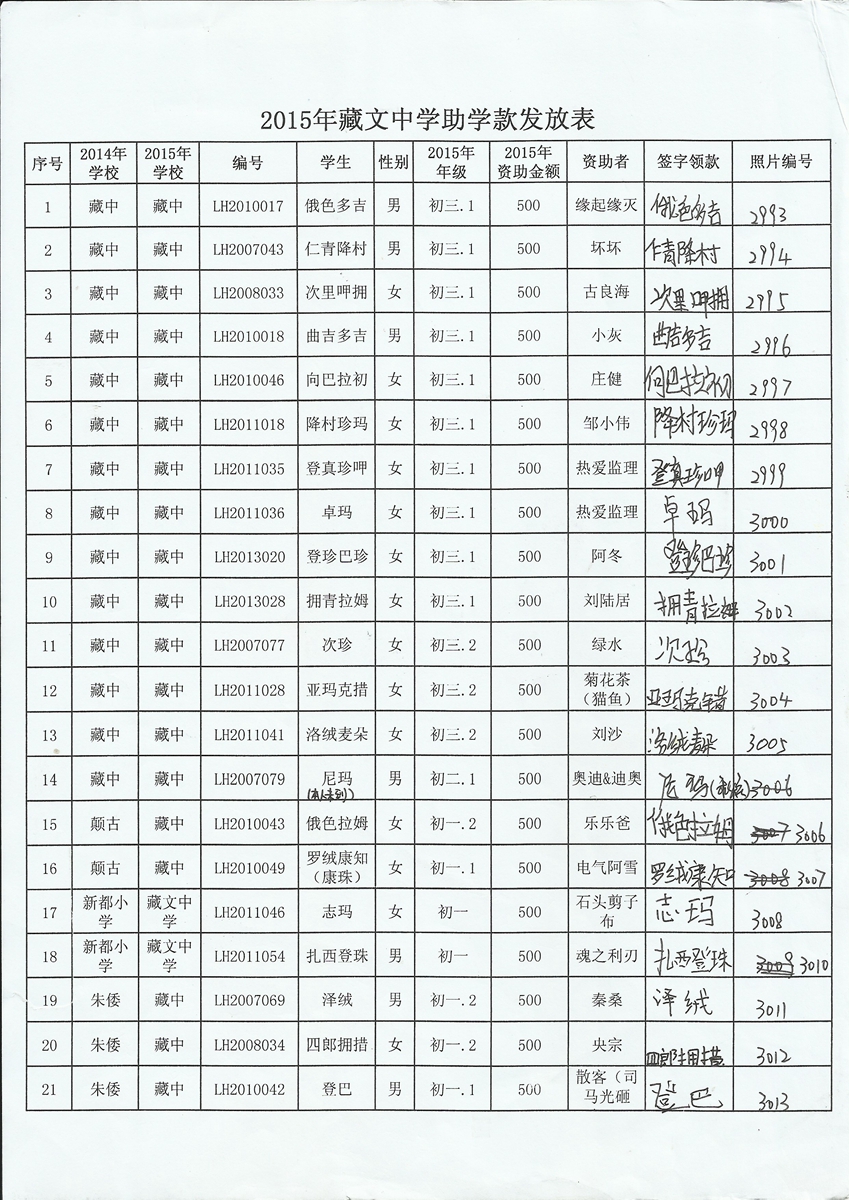 2015年藏文中学助学款发放表
序号 2014年学校 2015年学校 编号 学生 性别 2015年年级 2015年资助金额 资助者 签字领款 照片编号
1 藏中 藏中 LH2010017 俄色多吉 男 初三.1 500 缘起缘灭 俄色多吉 2993
2 藏中 藏中 LH2007043 仁青降村 男 初三.1 500 坏坏 仁青降村 2994
3 藏中 藏中 LH2008033 次里呷拥 女 初三.1 500 古良海 次里呷拥 2995
4 藏中 藏中 LH2010018 曲吉多吉 男 初三.1 500 小灰 曲吉多吉 2996
5 藏中 藏中 LH2010046 向巴拉初 女 初三.1 500 庄健 向巴拉初 2997
6 藏中 藏中 LH2011018 降村珍玛 女 初三.1 500 邹小伟 降村珍玛 2998
7 藏中 藏中 LH2011035 登真珍呷 女 初三.1 500 热爱监理 登真珍呷 2999
8 藏中 藏中 LH2011036 卓玛 女 初三.1 500 热爱监理 卓玛 3000
9 藏中 藏中 LH2013020 登珍巴珍 女 初三.1 500 阿冬 登珍巴珍 3001
10 藏中 藏中 LH2013028 拥青拉姆 女 初三.1 500 刘陆居 拥青拉姆 3002
11 藏中 藏中 LH2007077 次珍 女 初三.2 500 绿水 次珍 3003
12 藏中 藏中 LH2011028 亚玛克措 女 初三.2 500 菊花茶（猫鱼） 亚玛克措 3004
13 藏中 藏中 LH2011041 洛绒麦朵 女 初三.2 500 刘沙 洛绒麦朵 3005
14 藏中 藏中 LH2007079 尼玛(本人未到) 男 初二.1 500 奥迪&迪奥 尼玛 3006
15 颠古 藏中 LH2010043 俄色拉姆 女 初一.2 500 乐乐爸 俄色拉姆 3007 3006
16 颠古 藏中 LH2010049 罗绒康知（康珠） 女 初一.1 500 电气阿雪 罗绒康知 3008 3007
17 新都小学 藏文中学 LH2011046 志玛 女 初一 500 石头剪子布 志玛 3008
18 新都小学 藏文中学 LH2011054 扎西登珠 男 初一 500 魂之利刃 扎西登珠 3009 3010
19 朱倭 藏中 LH2007069 泽绒 男 初一.2 500 秦桑 泽绒 3011
20 朱倭 藏中 LH2008034 四郎拥措 女 初一.2 500 央宗 四郎拥措 3012
21 朱倭 藏中 LH2010042 登巴 男 初一.1 500 散客（司马光砸 登巴 3013